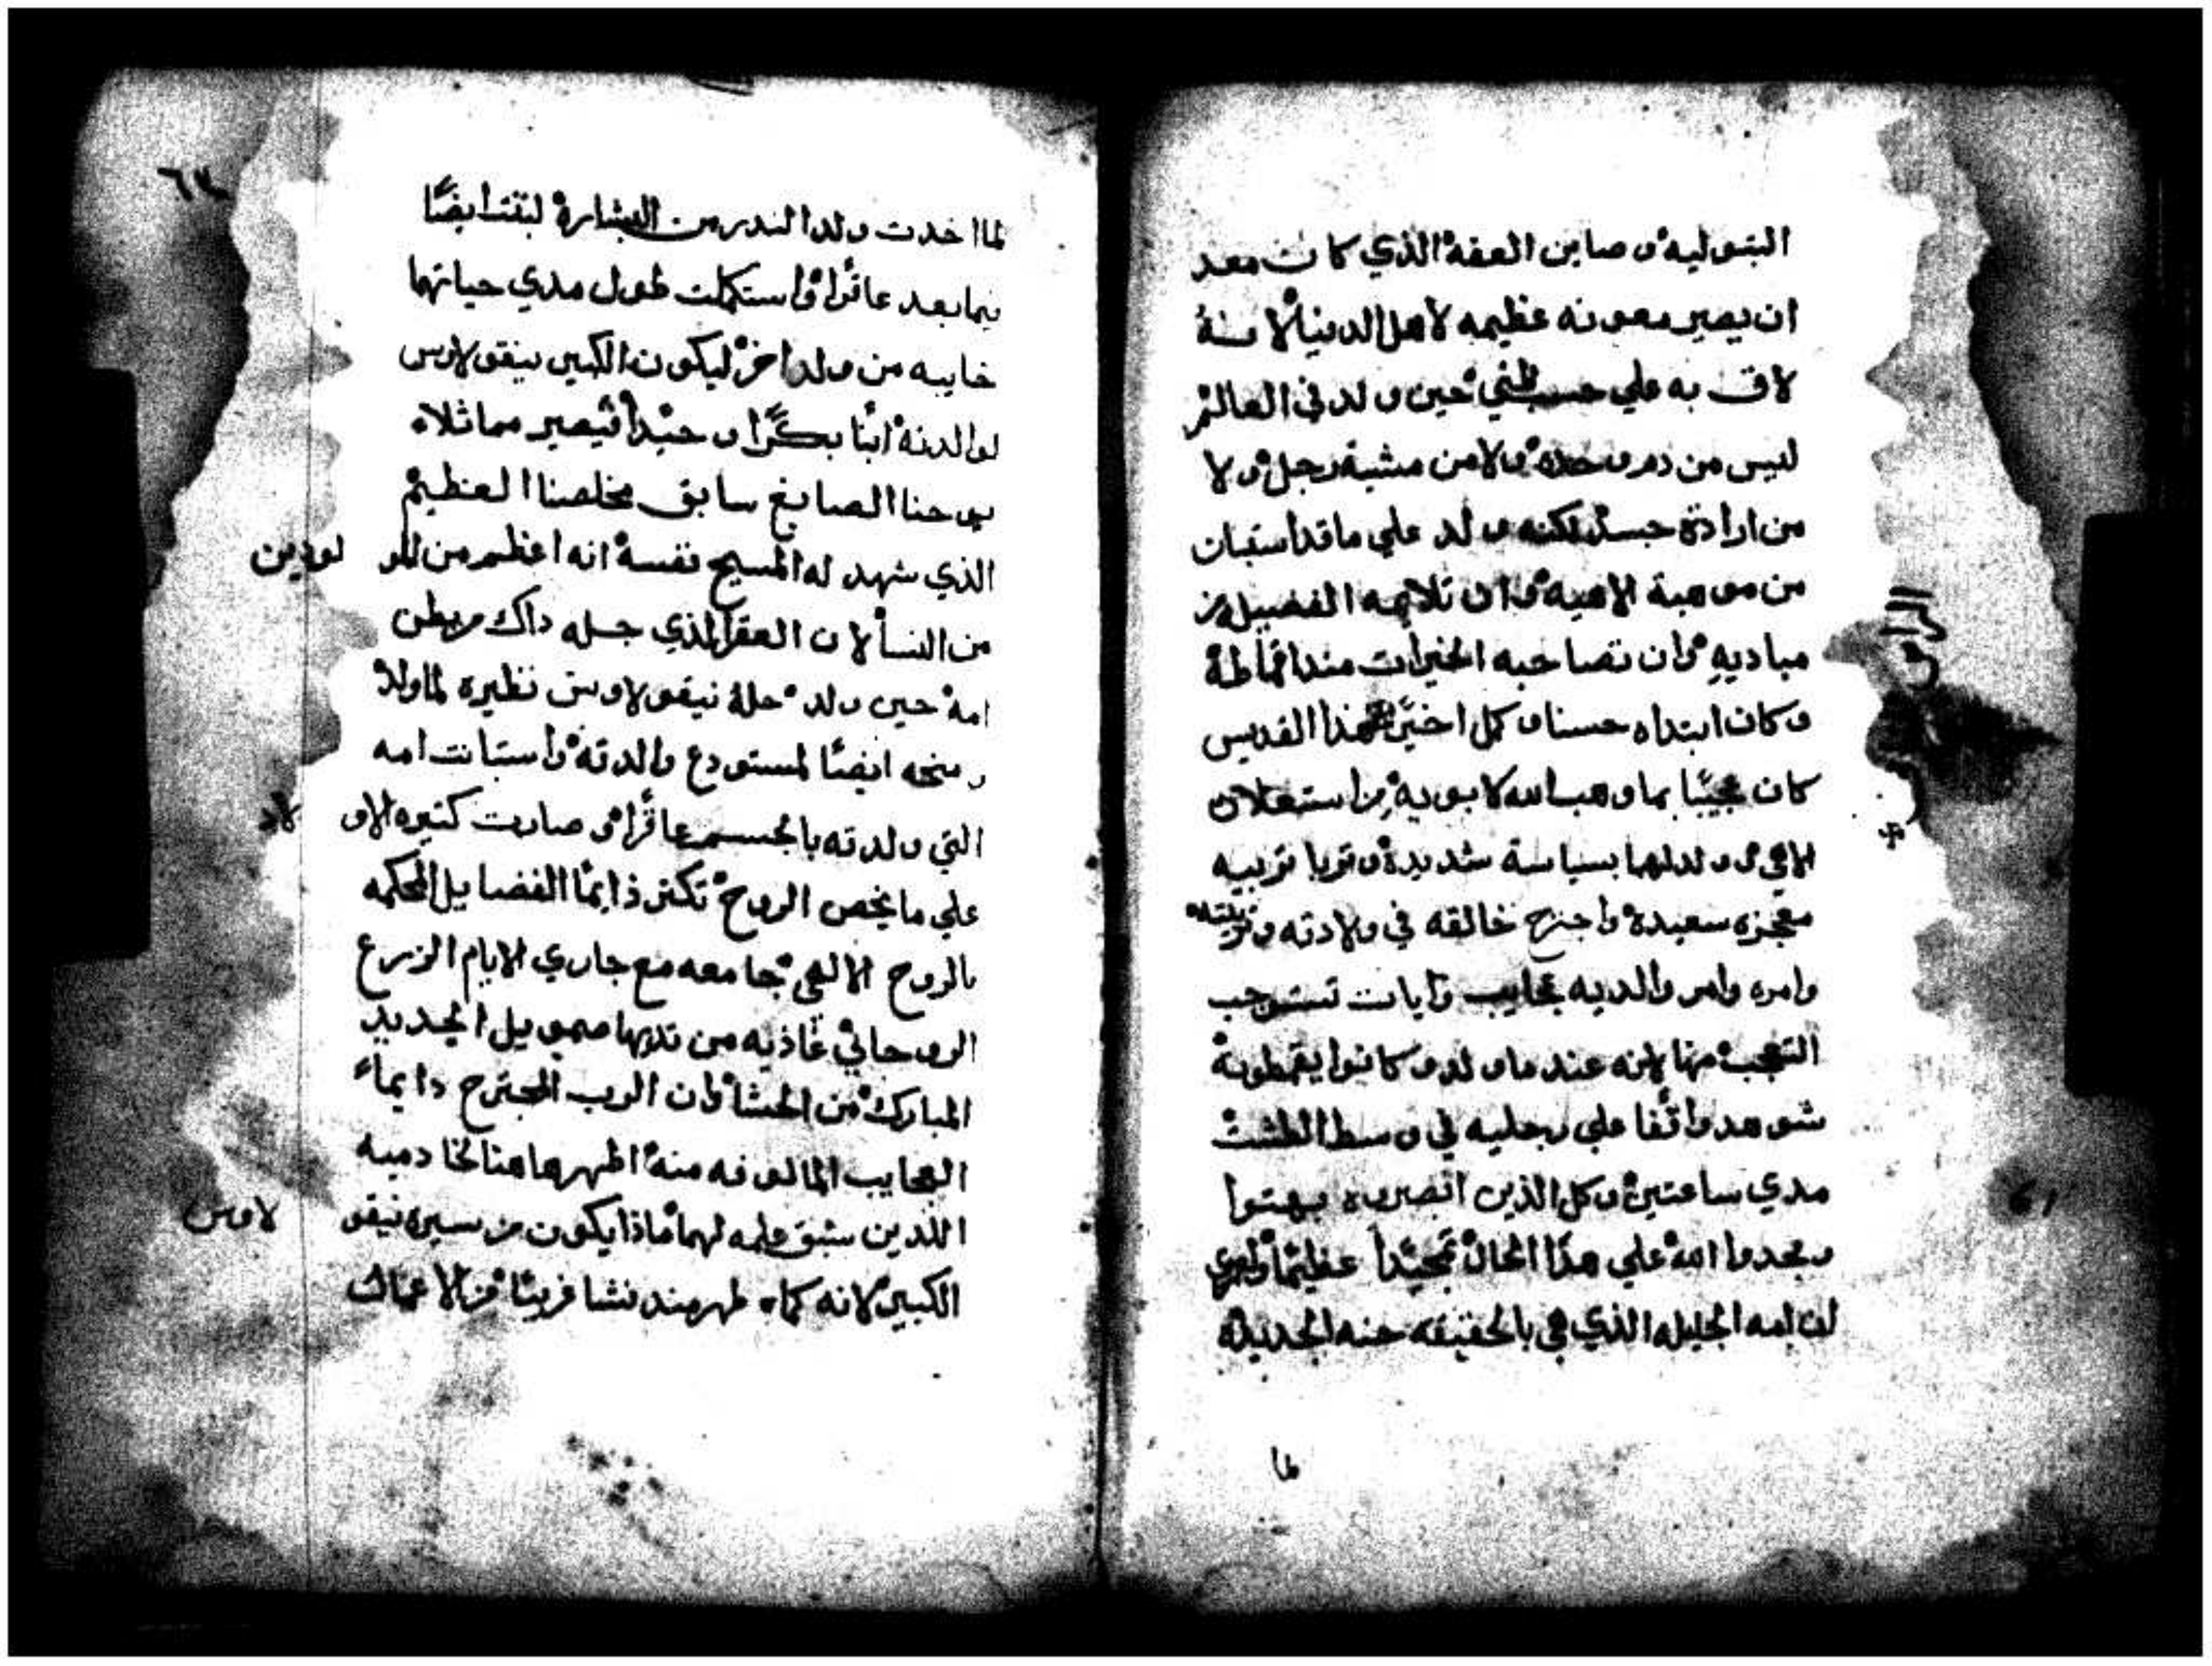 البتوليه وصاين العفه الذي كانت معد
ان يصير معونه عظيمه لاهل الدنيا لانه
لاق به علي حسب ظني حين ولد في العالم
ليس من دم وحده ولا من مشية رجل ولا
من ارادة جسد لكنه ولد علي ما قد استبان
من موهبة الاهيه وان تلايمه الفضيله من
مباديه وان تصاحبه الخيرات مند اقماطة
وكان ابتداه حسنا وكل اخير هذا القديس
كان عجيبا بما وهب الله لابويه من استعلان
الاهي وولد لهما بسياسة شديدة وتربا تربيه
معجزه سعيدة واجترح خالقه في ولادته وتربيته
وامره وامر والديه عجايب وايات تستوجب
التعجب منها لانه عند ما ولد وكانوا يقمطونه
شوهد واقفا علي رجليه في وسط الطشت
مدي ساعتين وكل الذين ابصروه بهتوا
ومجدوا الله علي هذا الحال تمجيدا عظيما
لان امه الجليله الذي هي بالحقيقه حنه الجديدة
لما
٦٢
لما اخدت ولدا لندر من البشارة لبتت ايضا
فيما بعد عاقرا واستكملت طول مدي حياتهما
خايبه من ولد اخر ليكون الكبير نيقولاوس
لوالدته ابنا بكرا وحيدا فيصير مماثلاه
يوحنا الصابغ سابق مخلصنا العظيم
الذي شهد له المسيح نفسه انه اعظم من المو لودين
من النسا لان العقر الذي حله داك من بطن
امه حين ولد حله نيقولاوس نظيره لما ولد
ومنحه ايضا لمستودع والدته واستبانت امه
التي ولدته بالجسم عاقرا وصارت كتيره الاو لاد
علي ما يخص الروح تكنز دايما الفضايل المحكمه
بالروح الالهي جامعه مع جاري الايام الزرع
الروحاني غاذيه من تديها صمويل الجديد
المبارك من الحشا وان الرب المجترح دايما
العجايب المالوفه منه اظهر هاهنا لخادميه
اللدين سبق علمه لهما ماذا يكون من سيرة نيقو لاوس
الكبير لانه كما ظهر مند نشا غريبا من الاعمال